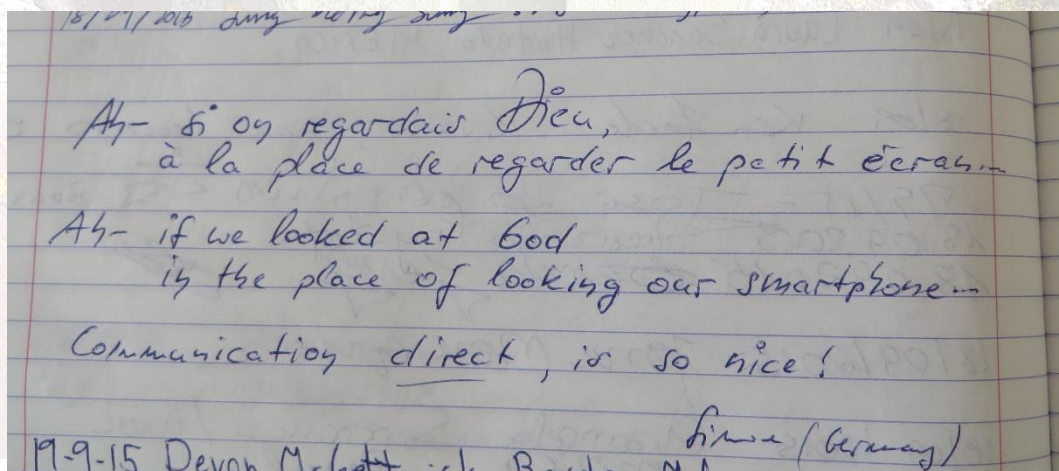 Ah- si on regardais Dieu,
à la place de regarder le petit écran...
Ah- if we looked at God
in the place of looking our smartphone...
Communication direct, is so nice!
(Germany)
19-9-15 Devon